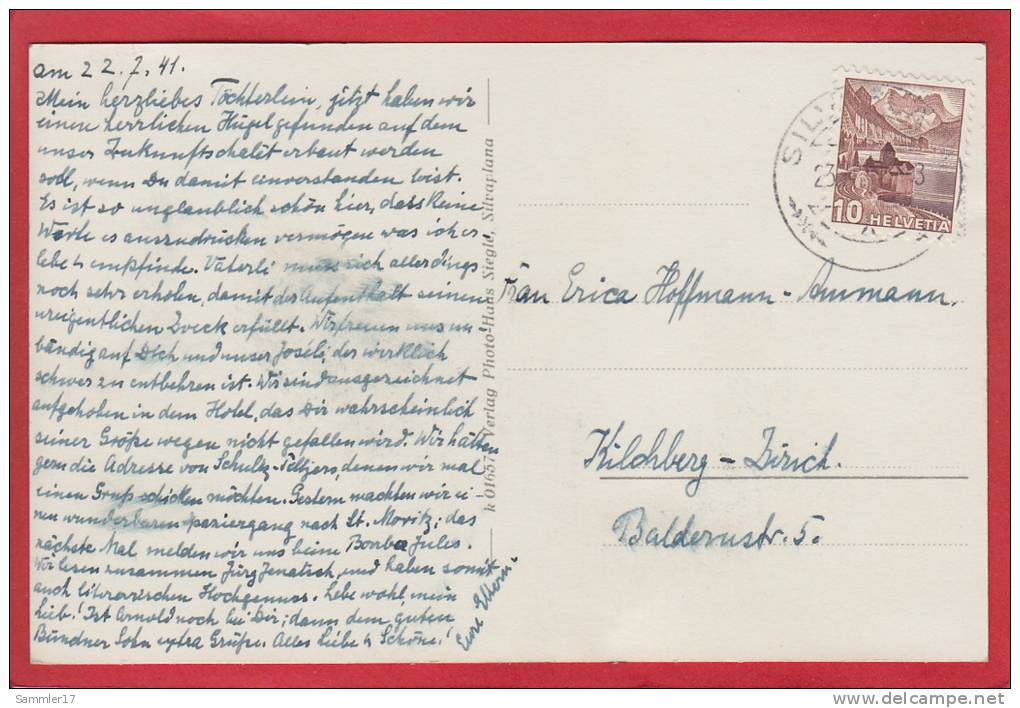 am 22. 7. 41.
Mein herzliebes Töchterlein, jetzt haben wir
einen herrlichen Hügel gefunden auf dem
unser Zukunftschalêt erbaut werden
soll, wenn Du damit einverstanden bist.
Es ist so unglaublich schön hier, dass keine
Worte es auszudrücken vermögen was ich er
lebe & empfinde. Vaterli muss sich allerdings
noch sehr erholen, damit der Aufenthalt seinen
ureigentlichen Zweck erfüllt. Wir freuen uns un
bändig auf Dich und unser Joséli, der wirklich
schwer zu entbehren ist. Wir sind ausgezeichnet
aufgehoben in dem Hotel, das Dir wahrscheinlich
seiner Größe wegen nicht gefallen wird. Wir hätten
gern die Adresse von denen wir mal
einen Gruß schicken möchten. Gestern machten wir ei
nen wunderbaren Spaziergang nach St. Moritz; das
nächste Mal melden wir uns beim Jules.
Wir lesen zusammen Jürg Jenatsch, und haben somit
auch literarischen Hochgenuss. Lebe wohl, mein
Lieb! Ist Arnold noch bei Dir; dann dem guten
Bündner Sohn extra Grüße. Alles Liebe & Schöne!
Eure Eltern.
k 01657 Verlag Photo-Hans Siegle, Silvaplana
10 HELVETIA
Frau Erica Hoffmann-Ammann.
Kilchberg-Zürich.
Baldernstr. 5.
Sammler17
www.delcampe.net